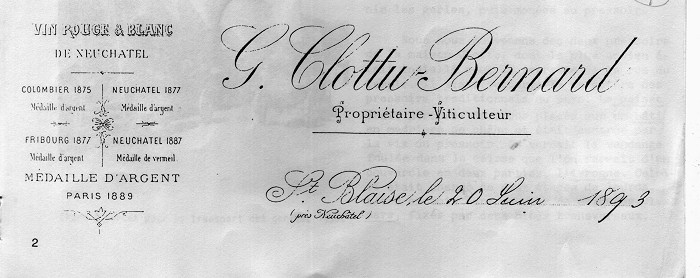 VIN ROUGE & BLANC
DE NEUCHATEL
COLOMBIER 1875
Médaille d'argent
NEUCHATEL 1877
Médaille d'argent
FRIBOURG 1877
Médaille d'argent
NEUCHATEL 1887
Médaille de vermeil
MÉDAILLE D'ARGENT
PARIS 1889
G. Clottu-Bernard
Propriétaire-Viticulteur
St. Blaise, le 20 Juin 1893
(près Neuchâtel)
2